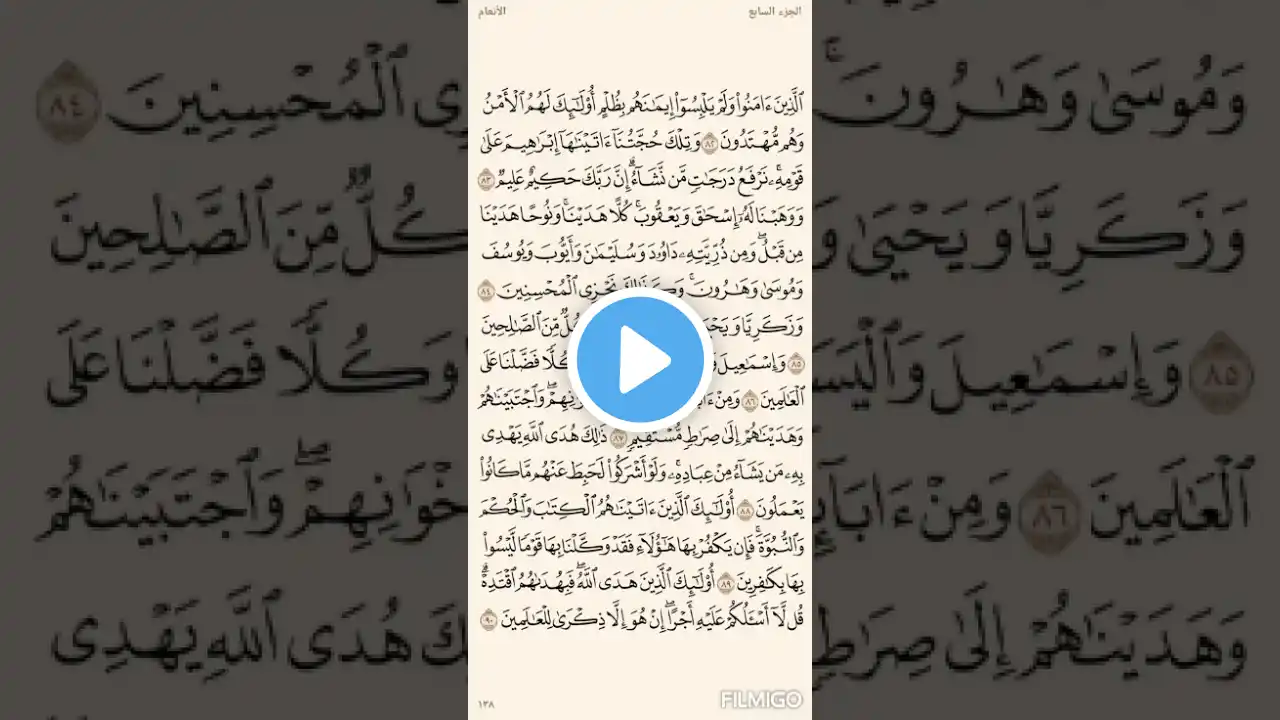 الجزء السابع
الأنعام
ٱلَّذِينَ ءَامَنُوا۟ وَلَمْ يَلْبِسُوٓا۟ إِيمَـٰنَهُم بِظُلْمٍ أُو۟لَـٰٓئِكَ لَهُمُ ٱلْأَمْنُ
وَهُم مُّهْتَدُونَ ٨٢ وَتِلْكَ حُجَّتُنَآ ءَاتَيْنَـٰهَآ إِبْرَٰهِيمَ عَلَىٰ
قَوْمِهِۦۚ نَرْفَعُ دَرَجَـٰتٍ مَّن نَّشَآءُۗ إِنَّ رَبَّكَ حَكِيمٌ عَلِيمٌ ٨٣
وَوَهَبْنَا لَهُۥٓ إِسْحَـٰقَ وَيَعْقُوبَۚ كُلًّا هَدَيْنَاۚ وَنُوحًا هَدَيْنَا
مِن قَبْلُۖ وَمِن ذُرِّيَّتِهِۦ دَاوُۥدَ وَسُلَيْمَـٰنَ وَأَيُّوبَ وَيُوسُفَ
وَمُوسَىٰ وَهَـٰرُونَۚ وَكَذَٰلِكَ نَجْزِى ٱلْمُحْسِنِينَ ٨٤
وَزَكَرِيَّا وَيَحْيَىٰ كُلٌّ مِّنَ ٱلصَّـٰلِحِينَ
٨٥ وَإِسْمَـٰعِيلَ وَكُلًّا فَضَّلْنَا عَلَى
ٱلْعَـٰلَمِينَ ٨٦ وَمِنْ وَٱجْتَبَيْنَـٰهُمْ
وَهَدَيْنَـٰهُمْ إِلَىٰ صِرَٰطٍ مُّسْتَقِيمٍ ٨٧ ذَٰلِكَ هُدَى ٱللَّهِ يَهْدِى
بِهِۦ مَن يَشَآءُ مِنْ عِبَادِهِۦۚ وَلَوْ أَشْرَكُوا۟ لَحَبِطَ عَنْهُم مَّا كَانُوا۟
يَعْمَلُونَ ٨٨ أُو۟لَـٰٓئِكَ ٱلَّذِينَ ءَاتَيْنَـٰهُمُ ٱلْكِتَـٰبَ وَٱلْحُكْمَ
وَٱلنُّبُوَّةَۚ فَإِن يَكْفُرْ بِهَا هَـٰٓؤُلَآءِ فَقَدْ وَكَّلْنَا بِهَا قَوْمًا لَّيْسُوا۟
بِهَا بِكَـٰفِرِينَ ٨٩ أُو۟لَـٰٓئِكَ ٱلَّذِينَ هَدَى ٱللَّهُۖ فَبِهُدَىٰهُمُ ٱقْتَدِهْۗ
قُل لَّآ أَسْـَٔلُكُمْ عَلَيْهِ أَجْرًاۖ إِنْ هُوَ إِلَّا ذِكْرَىٰ لِلْعَـٰلَمِينَ ٩٠
١٣٨
FILMIGO